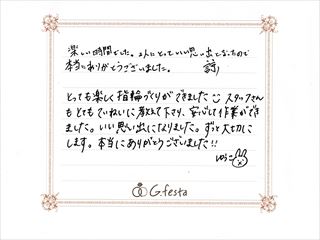 楽しい時間でした。2人にとっていい思い出となったので
本当にありがとうございました。
とっても楽しく指輪づくりができました スタッフさん
もとてもていねいに教えて下さり、安心して作業ができ
ました。いい思い出になりました。ずっと大切に
します。本当にありがとうございました!!
G.festa